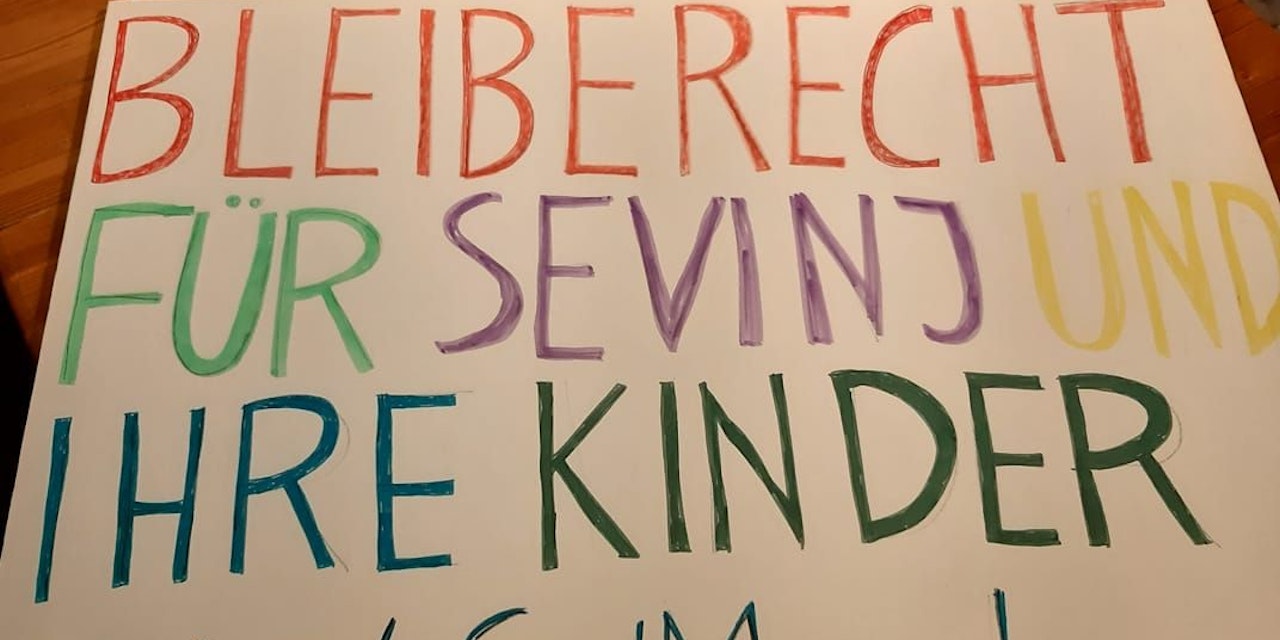 BLEIBERECHT
FÜR SEVINJ UND
IHRE KINDER